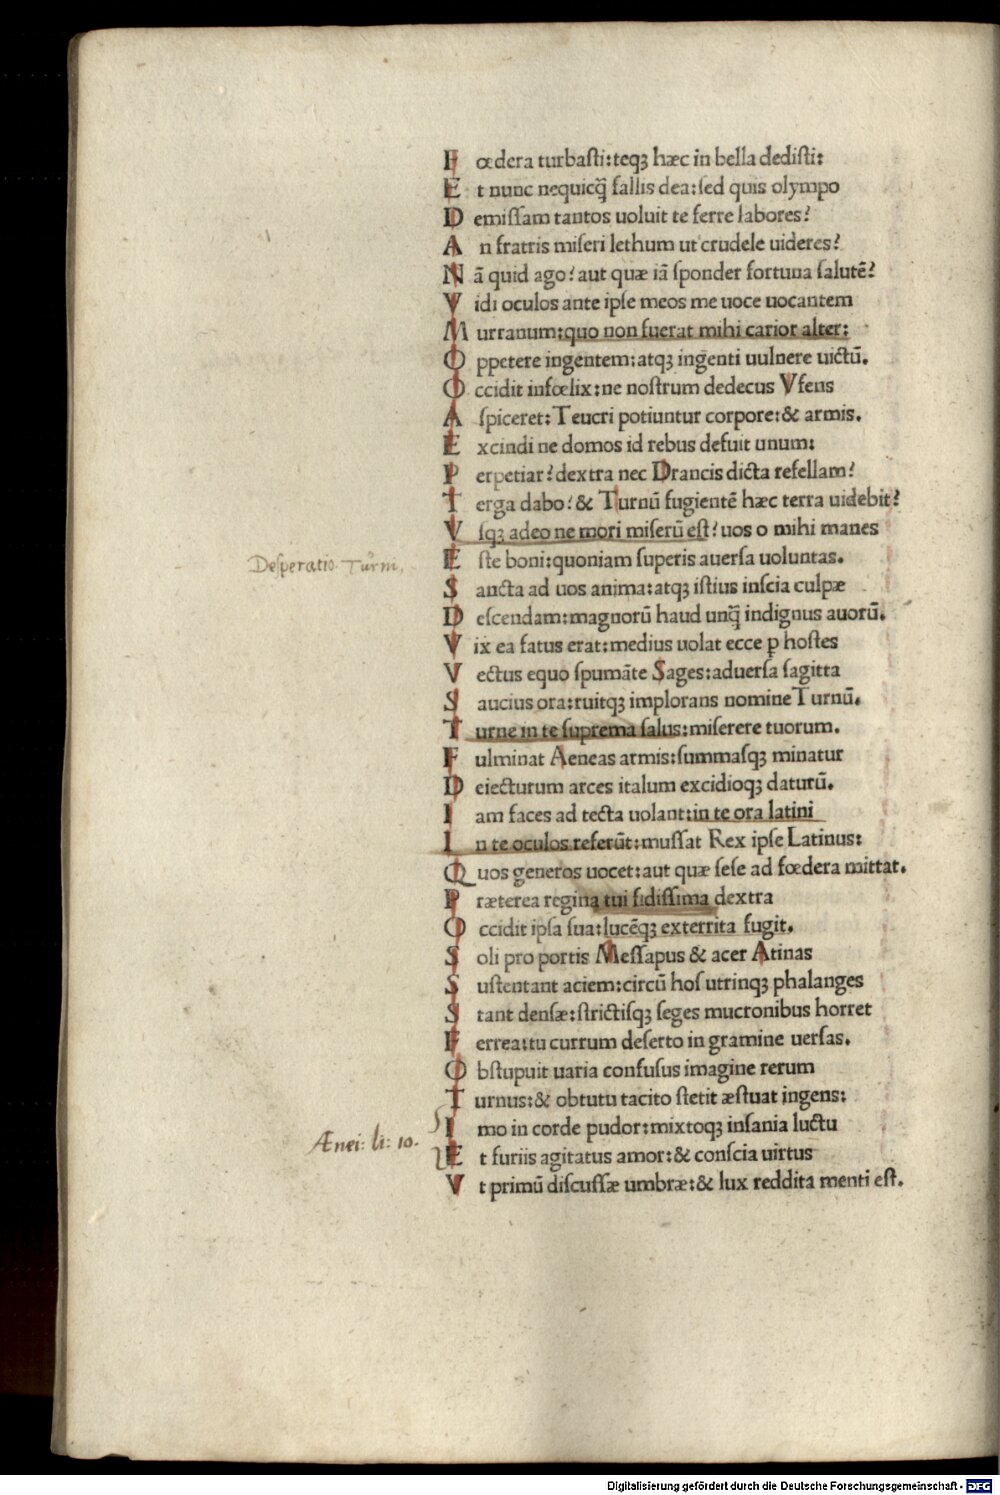 F œdera turbaſti:teqꝫ hæc in bella dediſti:
E t nunc nequicq̃ fallis dea:ſed quis olympo
D emiſſam tantos uoluit te ferre labores?
A n fratris miſeri lethum ut crudele uideres?
N ã quid ago? aut quæ iã ſponder fortuna ſalutẽ?
V idi oculos ante ipſe meos me uoce uocantem
M urranum:quo non fuerat mihi carior alter:
O ppetere ingentem:atqꝫ ingenti uulnere uictũ.
O ccidit infœlix:ne noſtrum dedecus Vfens
A ſpiceret:Teucri potiuntur corpore:& armis.
E xcindi ne domos id rebus defuit unum:
P erpetiar? dextra nec Drancis dicta refellam?
T erga dabo? & Turnũ fugientẽ hæc terra uidebit?
V ſqꝫ adeo ne mori miſerũ eſt? uos o mihi manes
Deſperatio Turni,
E ſte boni:quoniam ſuperis auerſa uoluntas.
S ancta ad uos anima:atqꝫ iſtius inſcia culpæ
D eſcendam:magnorũ haud unq̃ indignus auorũ.
V ix ea fatus erat:medius uolat ecce ꝑ hoſtes
V ectus equo ſpumãte Sages:aduerſa ſagitta
S aucius ora:ruitqꝫ implorans nomine Turnũ.
T urne in te ſuprema ſalus:miſerere tuorum.
F ulminat Aeneas armis:ſummaſqꝫ minatur
D eiecturum arces italum excidioqꝫ daturũ.
I am faces ad tecta uolant:in te ora latini
I n te oculos referũt:muſſat Rex ipſe Latinus:
Q uos generos uocet:aut quæ ſeſe ad fœdera mittat.
P ræterea regina tui fidiſſima dextra
O ccidit ipſa ſua:lucẽqꝫ exterrita fugit.
S oli pro portis Meſſapus & acer Atinas
S uſtentant aciem:circũ hoſ utrinqꝫ phalanges
S tant denſæ:ſtrictiſqꝫ ſeges mucronibus horret
F errea:tu currum deſerto in gramine uerſas.
O bſtupuit uaria confuſus imagine rerum
T urnus:& obtutu tacito ſtetit æſtuat ingens:
I mo in corde pudor:mixtoqꝫ inſania luctu
Ænei: li: 10.
E t furiis agitatus amor:& conſcia uirtus
V t primũ diſcuſſæ umbræ:& lux reddita menti eſt.
Digitalisierung gefördert durch die Deutsche Forschungsgemeinschaft - DFG